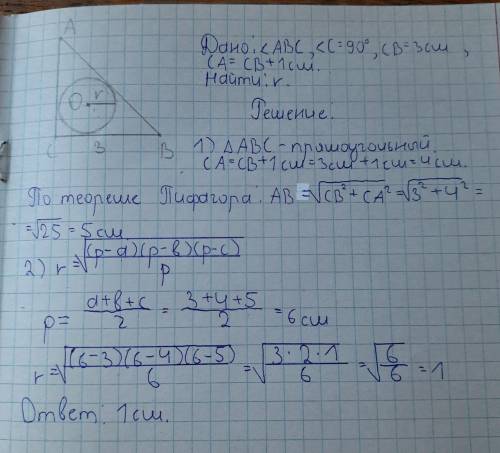 A
r
O
C 3 B
Дано: <ABC, <C=90°, CB=3см,
CA=CB+1см.
Найти: r.
Решение.
1) △ABC - прямоугольный.
CA=CB+1см=3см+1см=4см.
По теореме Пифагора: AB=√(CB²+CA²)=√(3²+4²)=
=√25=5см
2) r=√((p-a)(p-b)(p-c)/p)
p=(a+b+c)/2=(3+4+5)/2=6см
r=√((6-3)(6-4)(6-5)/6)=√(3·2·1/6)=√(6/6)=1
Ответ: 1см.